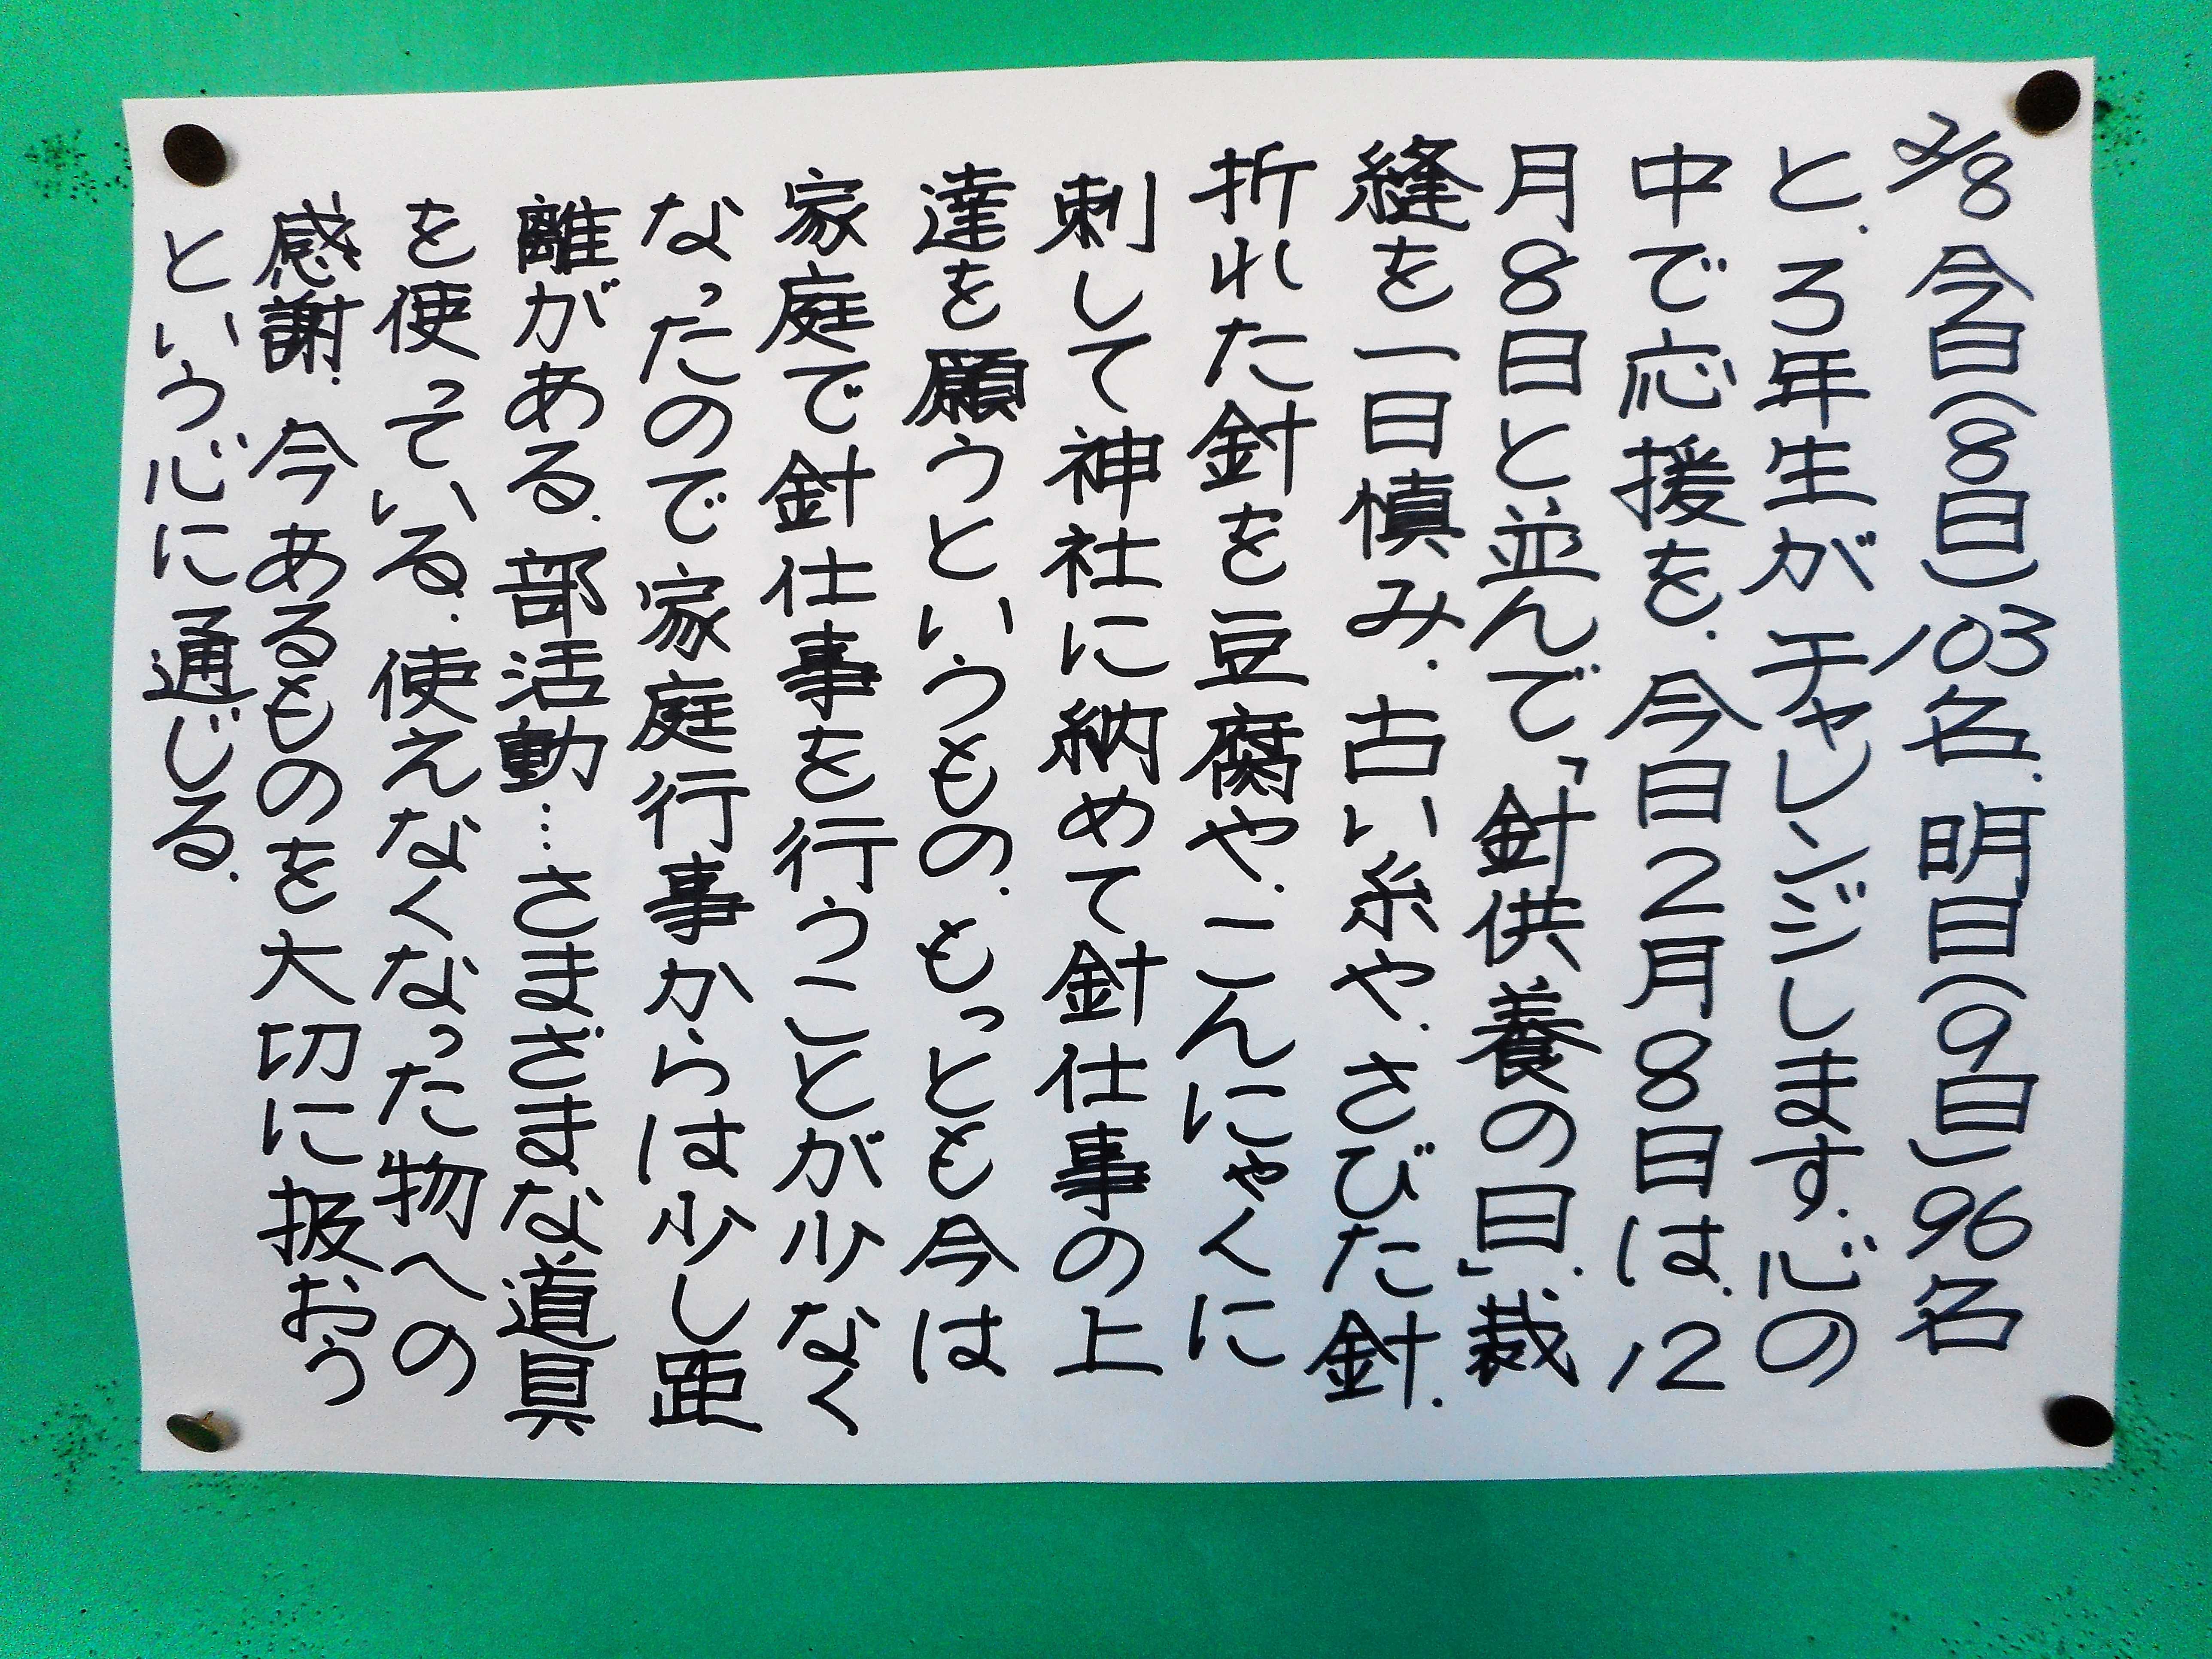 2/8 今日(8日)103名.明日(9日)96名
と.3年生がチャレンジします.心の
中で応援を.今日2月8日は.12
月8日と並んで.「針供養の日」.裁
縫を一日慎み.古い糸や.さびた針.
折れた針を豆腐や.こんにゃくに
刺して神社に納めて針仕事の上
達を願うというもの.もっとも今は
家庭で針仕事を行うことが少なく
なったので家庭行事からは少し距
離がある.部活動…さまざまな道具
を使っている.使えなくなった物への
感謝.今あるものを大切に扱おう
という心に通じる.